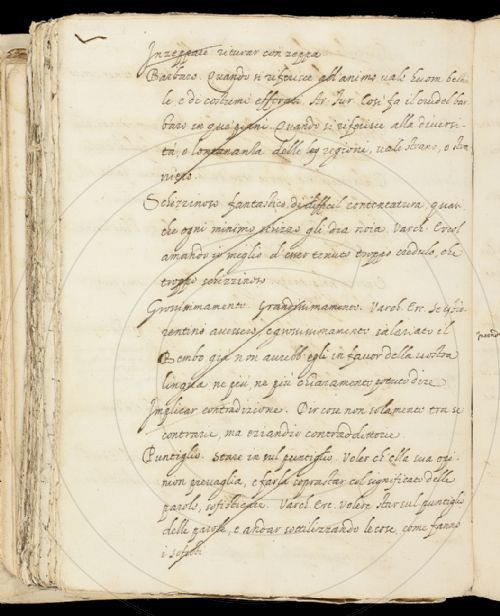 Inzeppare riturar con zeppa
Barbaro. Quando si riferisce all'animo vale huom bestia
le e de costumi efferati. Ar. Fur. Così fa il crudel bar
baro in que piani. Quando si riferisce alla diversi
tà, o lontananza delle regioni, vale strano, o stra
niero
Schizzinoso fantastico, di difficil contentatura, quasi
che ogni minimo schizzo gli dia noia. Varch. Ercol
amando io meglio d'esser tenuto troppo credulo, che
troppo schizzinoso
Grossimamente. Grandissimamente. Varch. Erc. Se i fio
rentini avessero grossissimamente salariato il
Bembo già non avrebb'egli in favor della vostra
lingua ne più, ne più chiaramente potuto dire
Implicar contradizione. Dir cose non solamente tra se
contrarie, ma eziandio contradditorie
Puntiglio. Stare in sul puntiglio. Voler ch'ella sua opi
nion prevaglia, e farla soprastar col significato delle
parole, sofisticare. Varch. Erc. Volere star sul puntiglio
delle parole, e andar sottilizzando le cose, come fanno
i sofisti